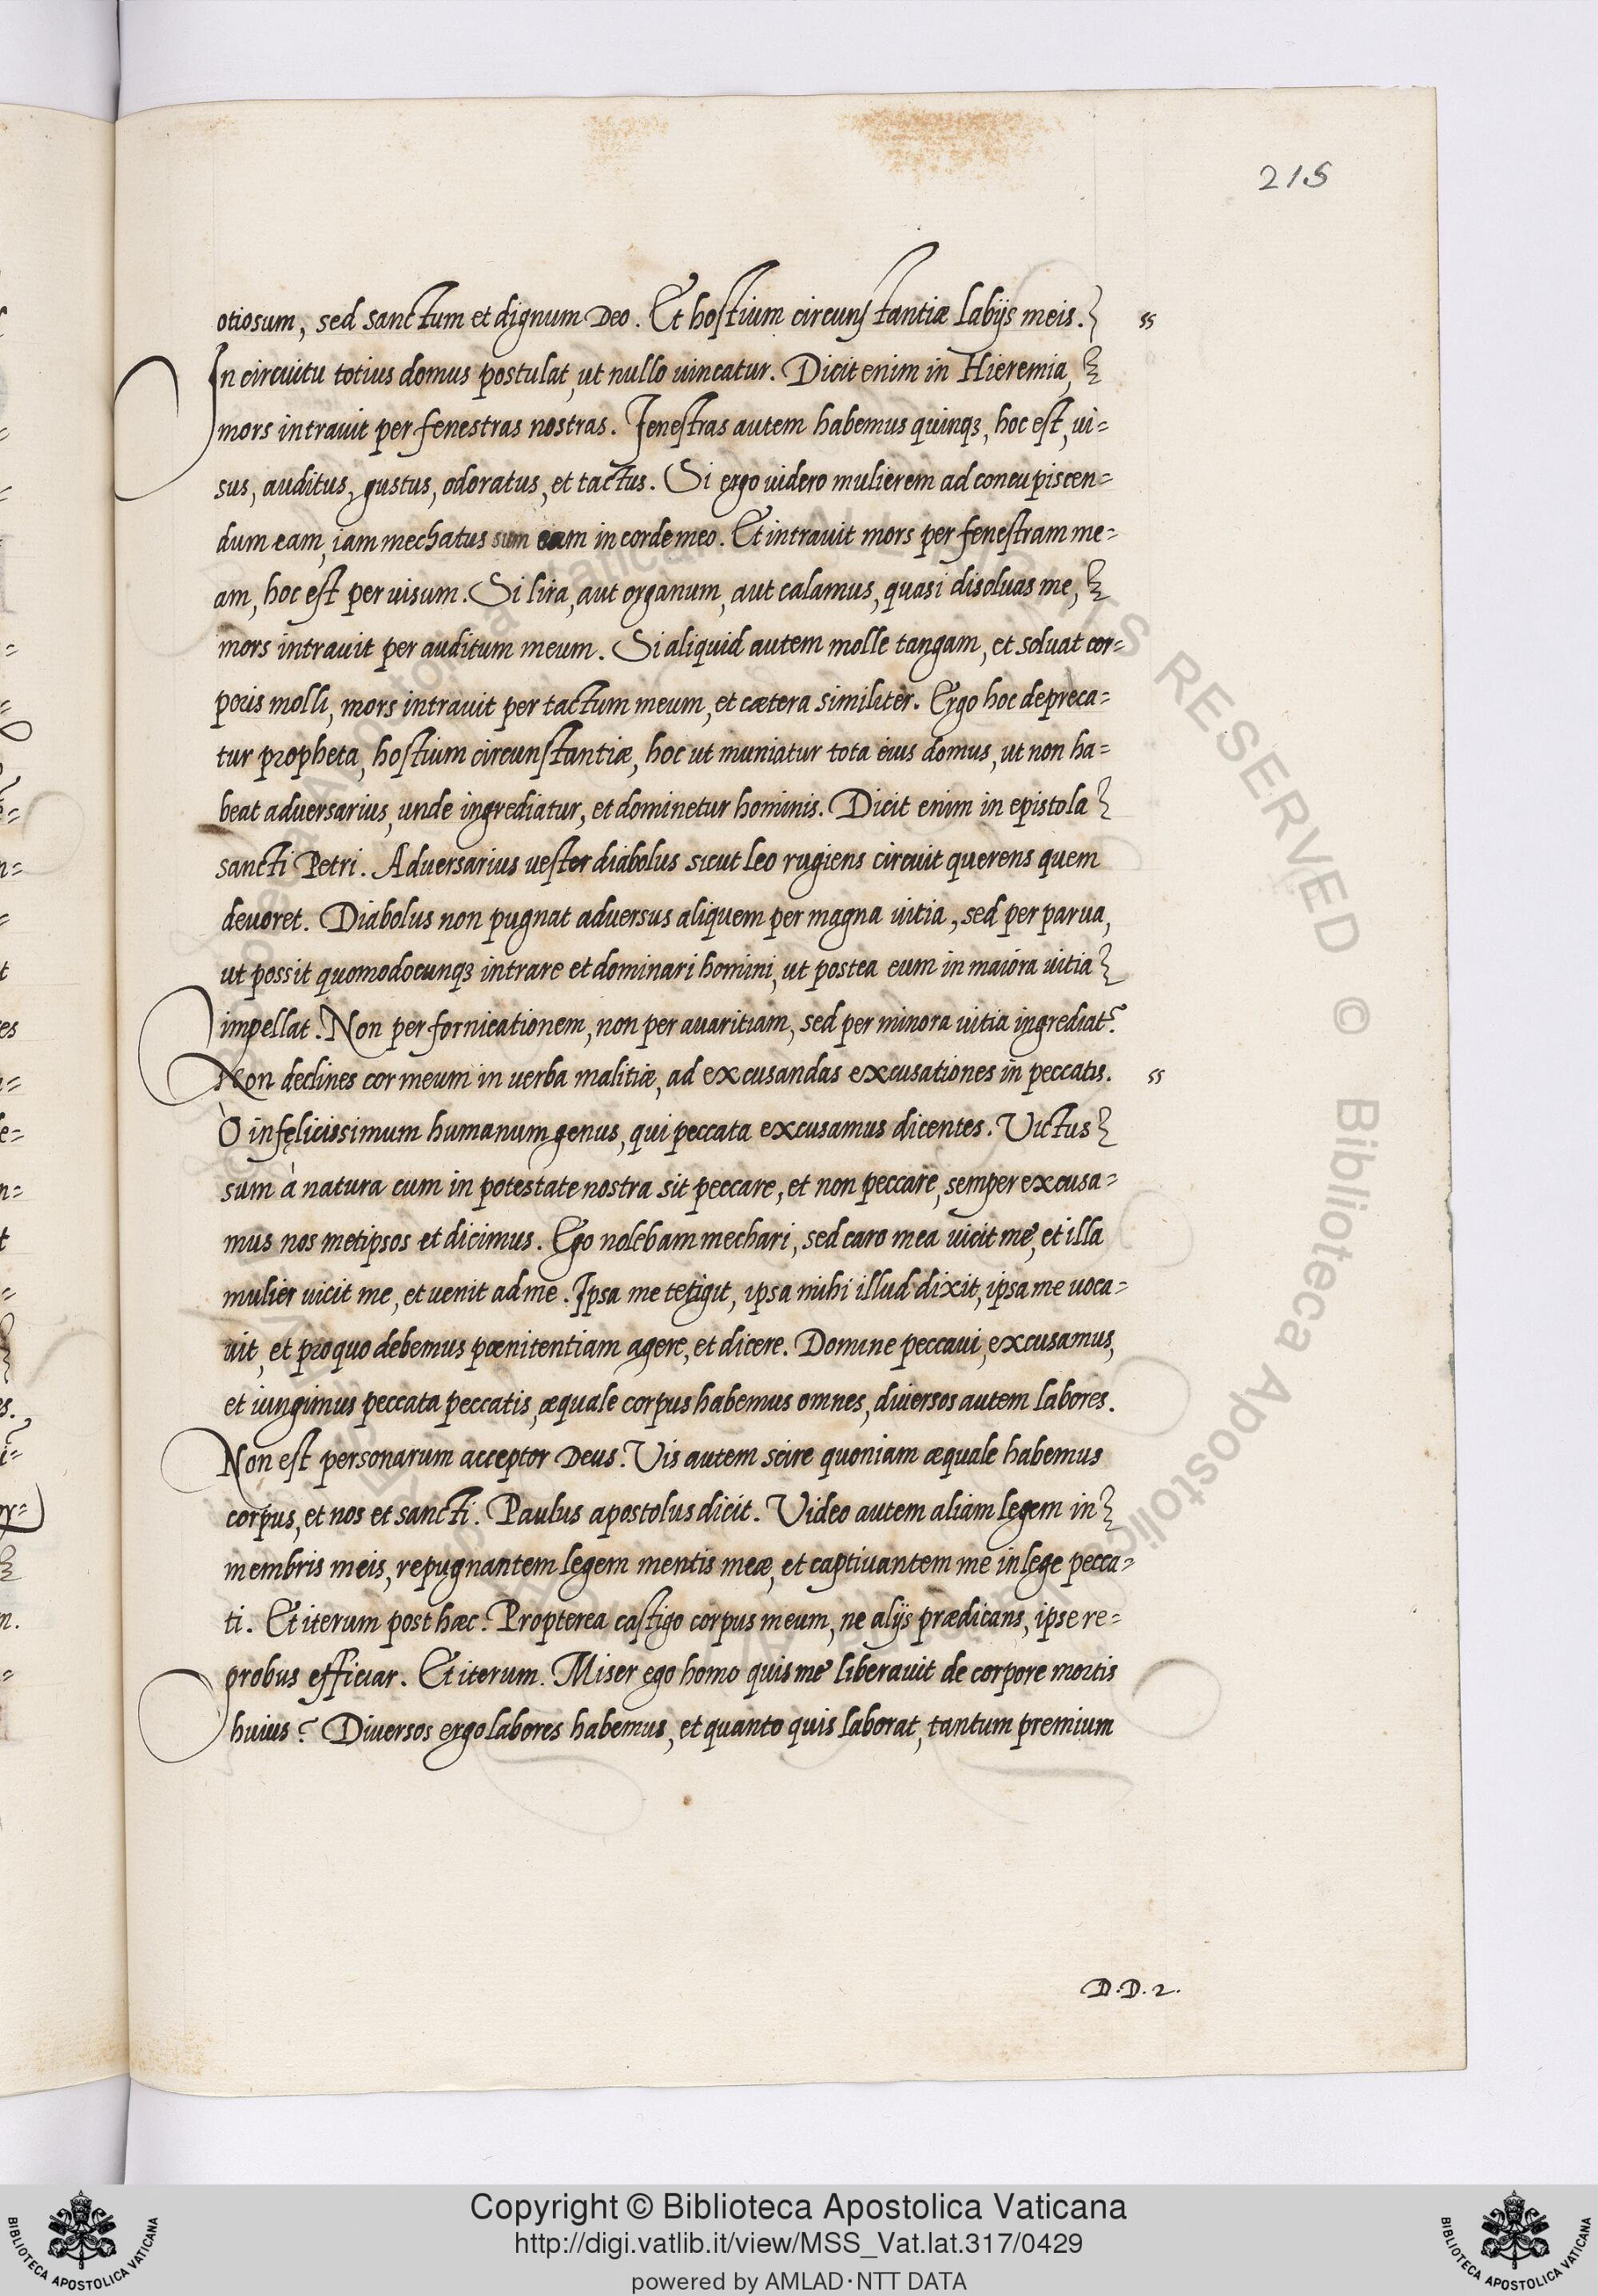 215
otiosum, sed sanctum et dignum Deo. Et hostium circunstantiæ labijs meis.
In circuitu totius domus postulat, ut nullo uincatur. Dicit enim in Hieremia,
mors intrauit per fenestras nostras. Fenestras autem habemus quinqȝ, hoc est, ui=
sus, auditus, gustus, odoratus, et tactus. Si ergo uidero mulierem ad concupiscen=
dum eam, iam mechatus sum eam in corde meo. Et intrauit mors per fenestram me=
am, hoc est per uisum. Si lira, aut organum, aut calamus, quasi disoluas me,
mors intrauit per auditum meum. Si aliquid autem molle tangam, et soluat cor=
poris molli, mors intrauit per tactum meum, et cætera similiter. Ergo hoc depreca=
tur propheta, hostium circunstantiæ, hoc ut muniatur tota eius domus, ut non ha=
beat aduersarius, unde ingrediatur, et dominetur hominis. Dicit enim in epistola
sancti Petri. Aduersarius uester diabolus sicut leo rugiens circuit querens quem
deuoret. Diabolus non pugnat aduersus aliquem per magna uitia, sed per parua,
ut possit quomodocunqȝ intrare et dominari homini, ut postea eum in maiora uitia
impellat. Non per fornicationem, non per auaritiam, sed per minora uitia ingrediat.
Non declines cor meum in uerba malitiæ, ad excusandas excusationes in peccatis.
Ò infęlicissimum humanum genus, qui peccata excusamus dicentes. Victus
sum à natura cum in potestate nostra sit peccare, et non peccare, semper excusa=
mus nos metipsos et dicimus. Ego nolebam mechari, sed caro mea uicit me, et illa
mulier uicit me, et uenit ad me. Ipsa me tetigit, ipsa mihi illud dixit, ipsa me uoca=
uit, et pro quo debemus pœnitentiam agere, et dicere. Domine peccaui, excusamus,
et iungimus peccata peccatis, æquale corpus habemus omnes, diuersos autem labores.
Non est personarum acceptor Deus. Vis autem scire quoniam æquale habemus
corpus, et nos et sancti. Paulus apostolus dicit. Video autem aliam legem in
membris meis, repugnantem legem mentis meæ, et captiuantem me in lege pecca=
ti. Et iterum post hæc. Propterea castigo corpus meum, ne alijs prædicans, ipse re=
probus efficiar. Et iterum. Miser ego homo quis me liberauit de corpore mortis
huius? Diuersos ergo labores habemus, et quanto quis laborat, tantum premium
D.D.2.
Copyright © Biblioteca Apostolica Vaticana
http://digi.vatlib.it/view/MSS_Vat.lat.317/0429
powered by AMLAD·NTT DATA